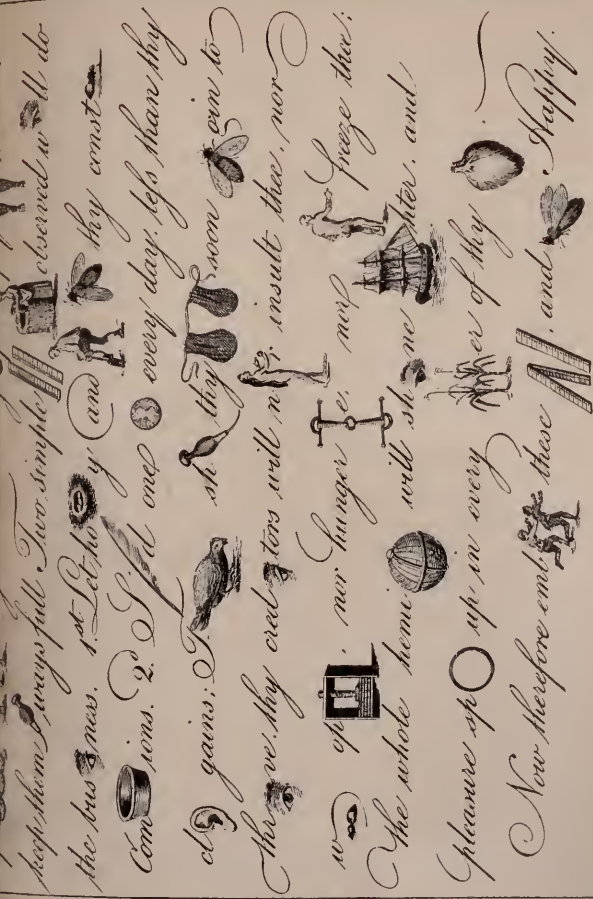 keep them ways full Two simple observed w ll do
the bus ness. 1st. Let ho y and thy const
Com ions. 2d. S d one every day less than thy
cl gains; T sh thy soon gin to
Thr ve, thy cred tors will n insult thee, nor
w op , nor hunger e, nor freeze thee;
The whole hemi will sh ne hter, and
pleasure sp up in every er of thy .
Now therefore emb these , and Happy.